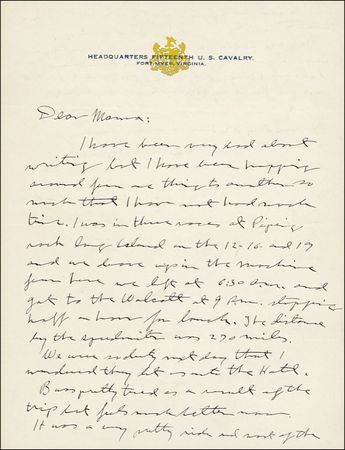 HEADQUARTERS FIFTEENTH U. S. CAVALRY,
FORT MYER, VIRGINIA.
Dear Mama:
I have been very bad about
writing but I have been hopping
around from one thing to another so
much that I have not had much
time. I was in three races at Piping
rock long Island on the 12-16 and 19
and we drove up in the machine
from here we left at 6:30 A.m. and
got to the Walcott at 9 P.m. stopping
half a hour for lunch. The distance
by the speedomiter was 270 miles.
We were so dusty that day that I
wondered they let us into the Hotel.
B was pretty tired as a result of the
trip but feels much better now.
It was a very pretty ride and most of the